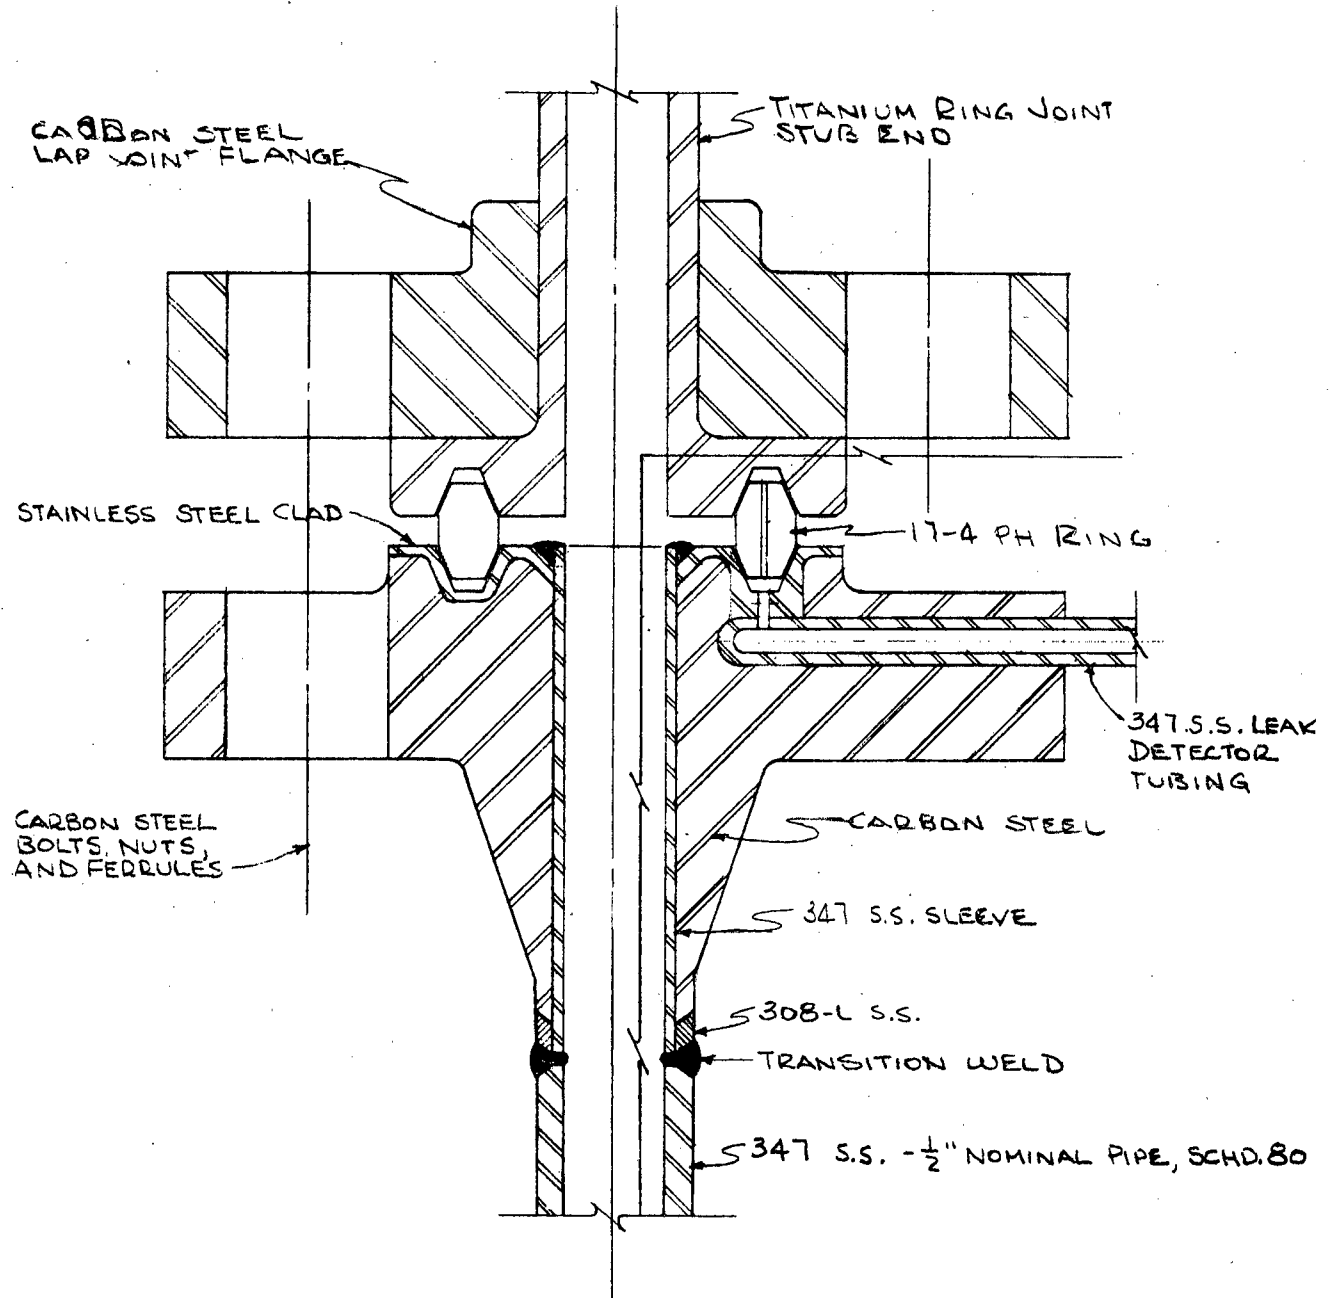 TITANIUM RING JOINT
STUB END
CARBON STEEL
LAP JOINT FLANGE
STAINLESS STEEL CLAD
17-4 PH RING
347 S.S. LEAK
DETECTOR
TUBING
CARBON STEEL
BOLTS, NUTS,
AND FERRULES
CARBON STEEL
347 S.S. SLEEVE
308-L S.S.
TRANSITION WELD
347 S.S. - ½" NOMINAL PIPE, SCHD. 80